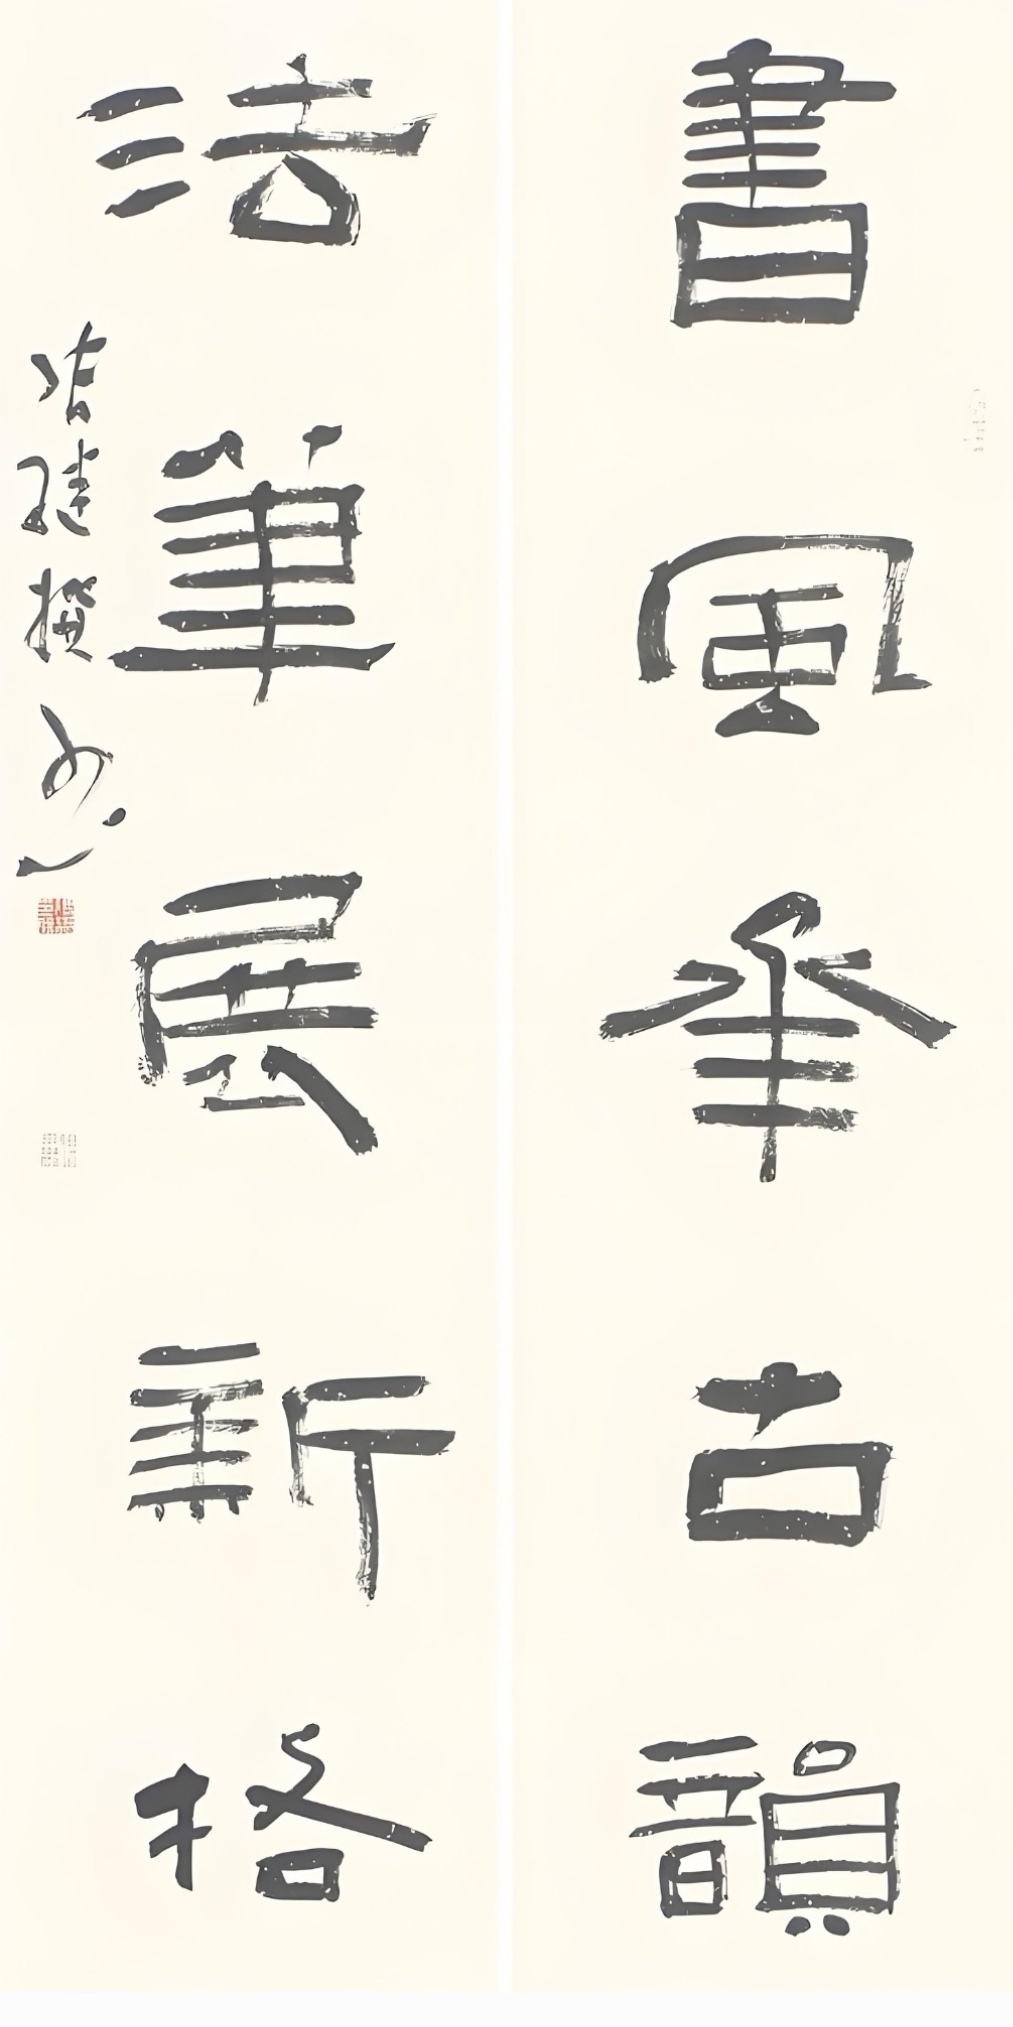 書風承古韻
法筆展新格